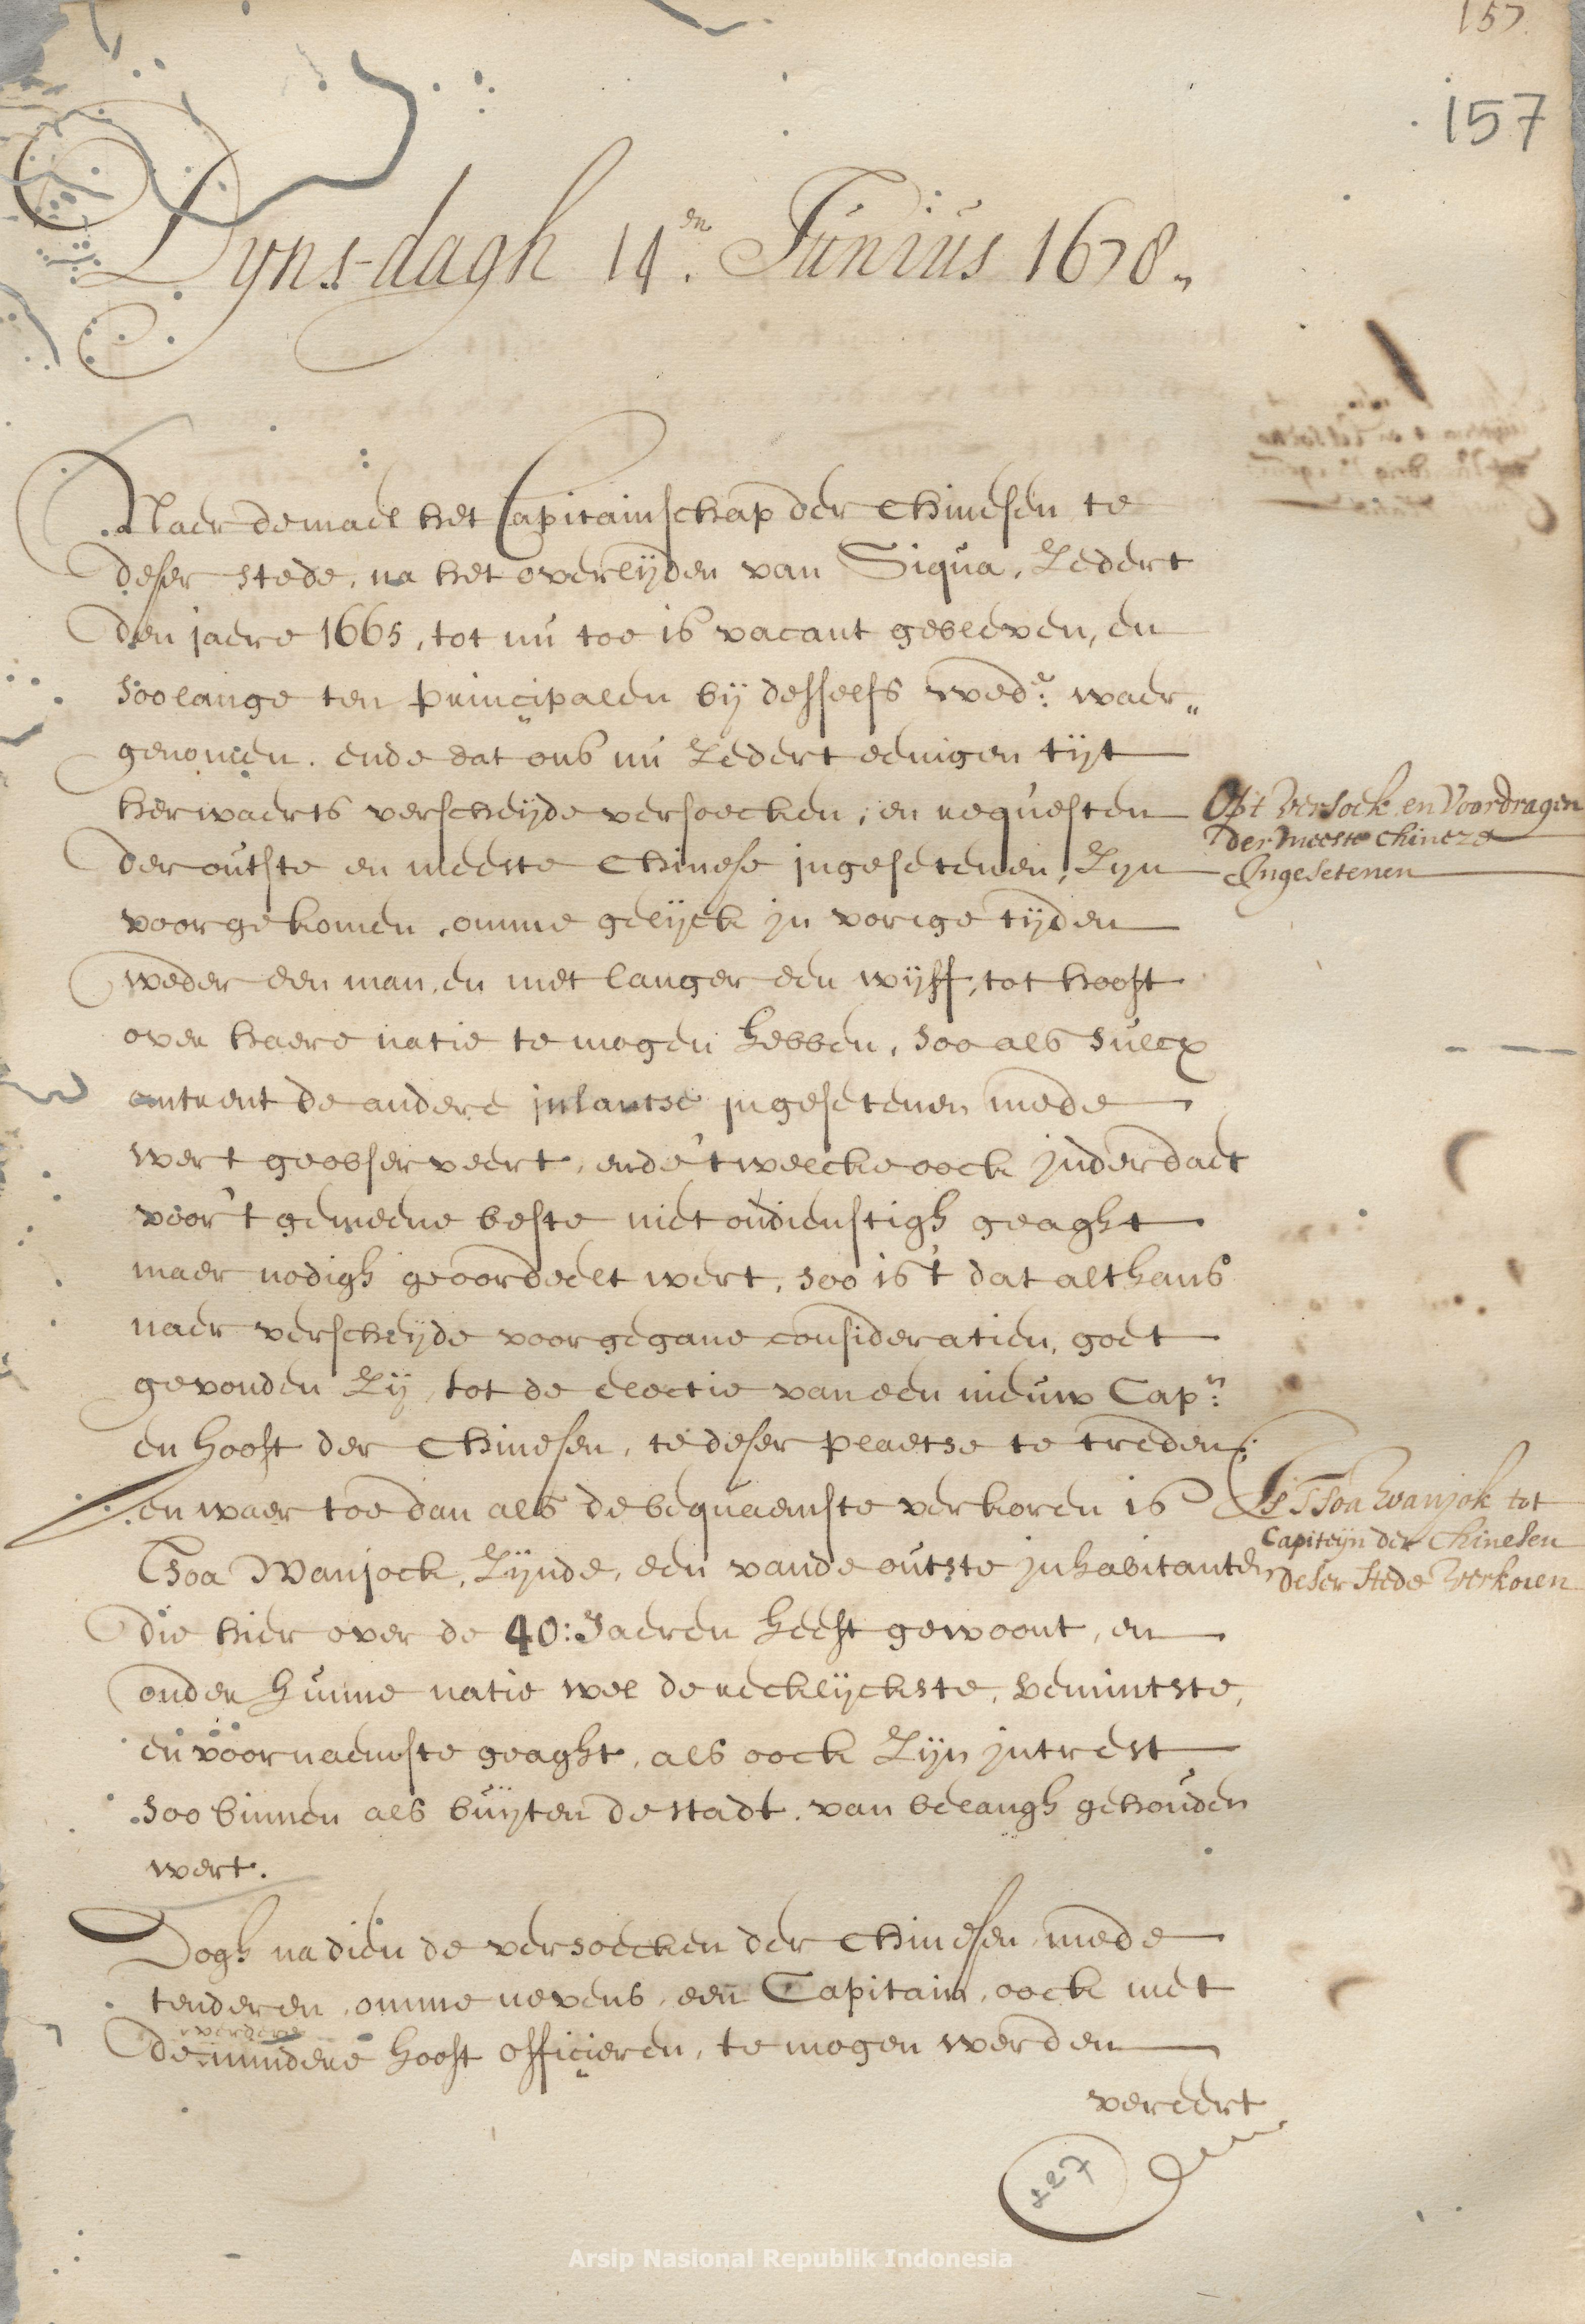 157
157
Dynsdagh 14.en Junius 1678.
Naerdemael het Capitainschap der Chinesen te
deser stede, na het overlyden van Siqua, zedert
den jaere 1665, tot nu toe is vacant gebleven, en
soolange ten principalen bij desselfs wed.e waer„
genomen. ende dat ons nu zedert eenigen tijt
herwaerts verscheijde versoecken, en requesten
der outste en meeste Chinese ingesetenen, zyn
voorgekomen, omme gelijck in vorige tijden
weder een man, en niet langer een wijff, tot hooft
over haere natie te mogen hebben, soo als sulcx
omtrent de andere inlantse ingesetenen mede
wert geobserveert, ende 't welcke oock inderdaet
voor 't gemeene beste niet ondienstigh geaght
maer nodigh geoordeelt wert, soo is 't dat althans
naer verscheijde voorgegane consideratien, goet
gevonden zij, tot de electie van een nieuw Cap.n
en hooft der Chinesen, te deser plaetse te treden;
en waer toe dan als de bequaemste verkoren is
Tsoa Wanjock, zijnde, een vande outste inhabitanten
die hier over de 40: Jaeren heeft gewoont, en
onder hunne natie wel de reckelijckste, bemintste,
en voornaemste geaght, als oock zijn intrest
soo binnen als buijten de stadt, van belangh gehouden
wert.
Dogh nadien de versoecken der Chinesen mede
tenderen, omme nevens, een Capitain, oock met
verdere
de mindere hooft officieren, te mogen werden
vereert
127
Op't versoek en Voordragen
der meeste Chineze
Ingesetenen
Is Tsoa Wanjok tot
Capiteijn der Chinesen
deser stede verkoren
Arsip Nasional Republik Indonesia